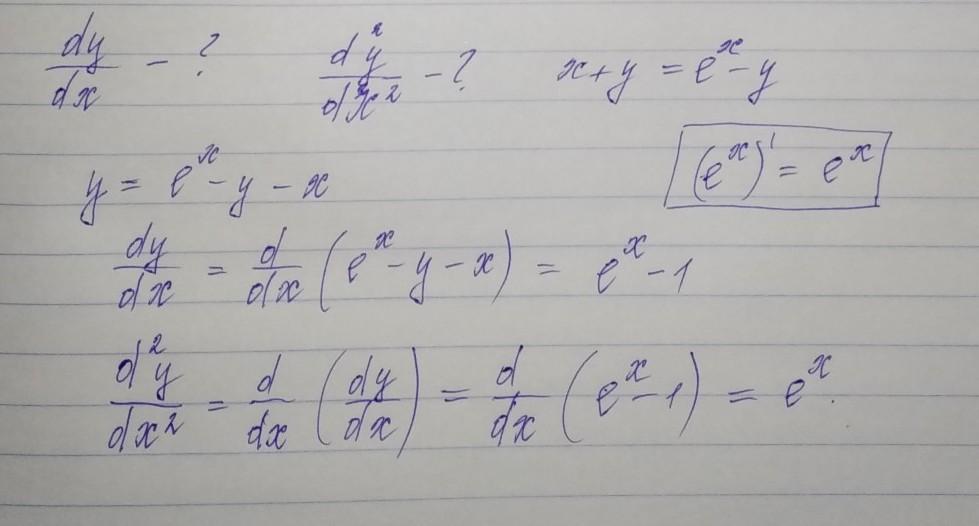 dy/dx - ? d²y/dx² - ? x+y = eˣ-y
y = eˣ - y - x
(eˣ)' = eˣ
dy/dx = d/dx (eˣ - y - x) = eˣ - 1
d²y/dx² = d/dx (dy/dx) = d/dx (eˣ - 1) = eˣ.